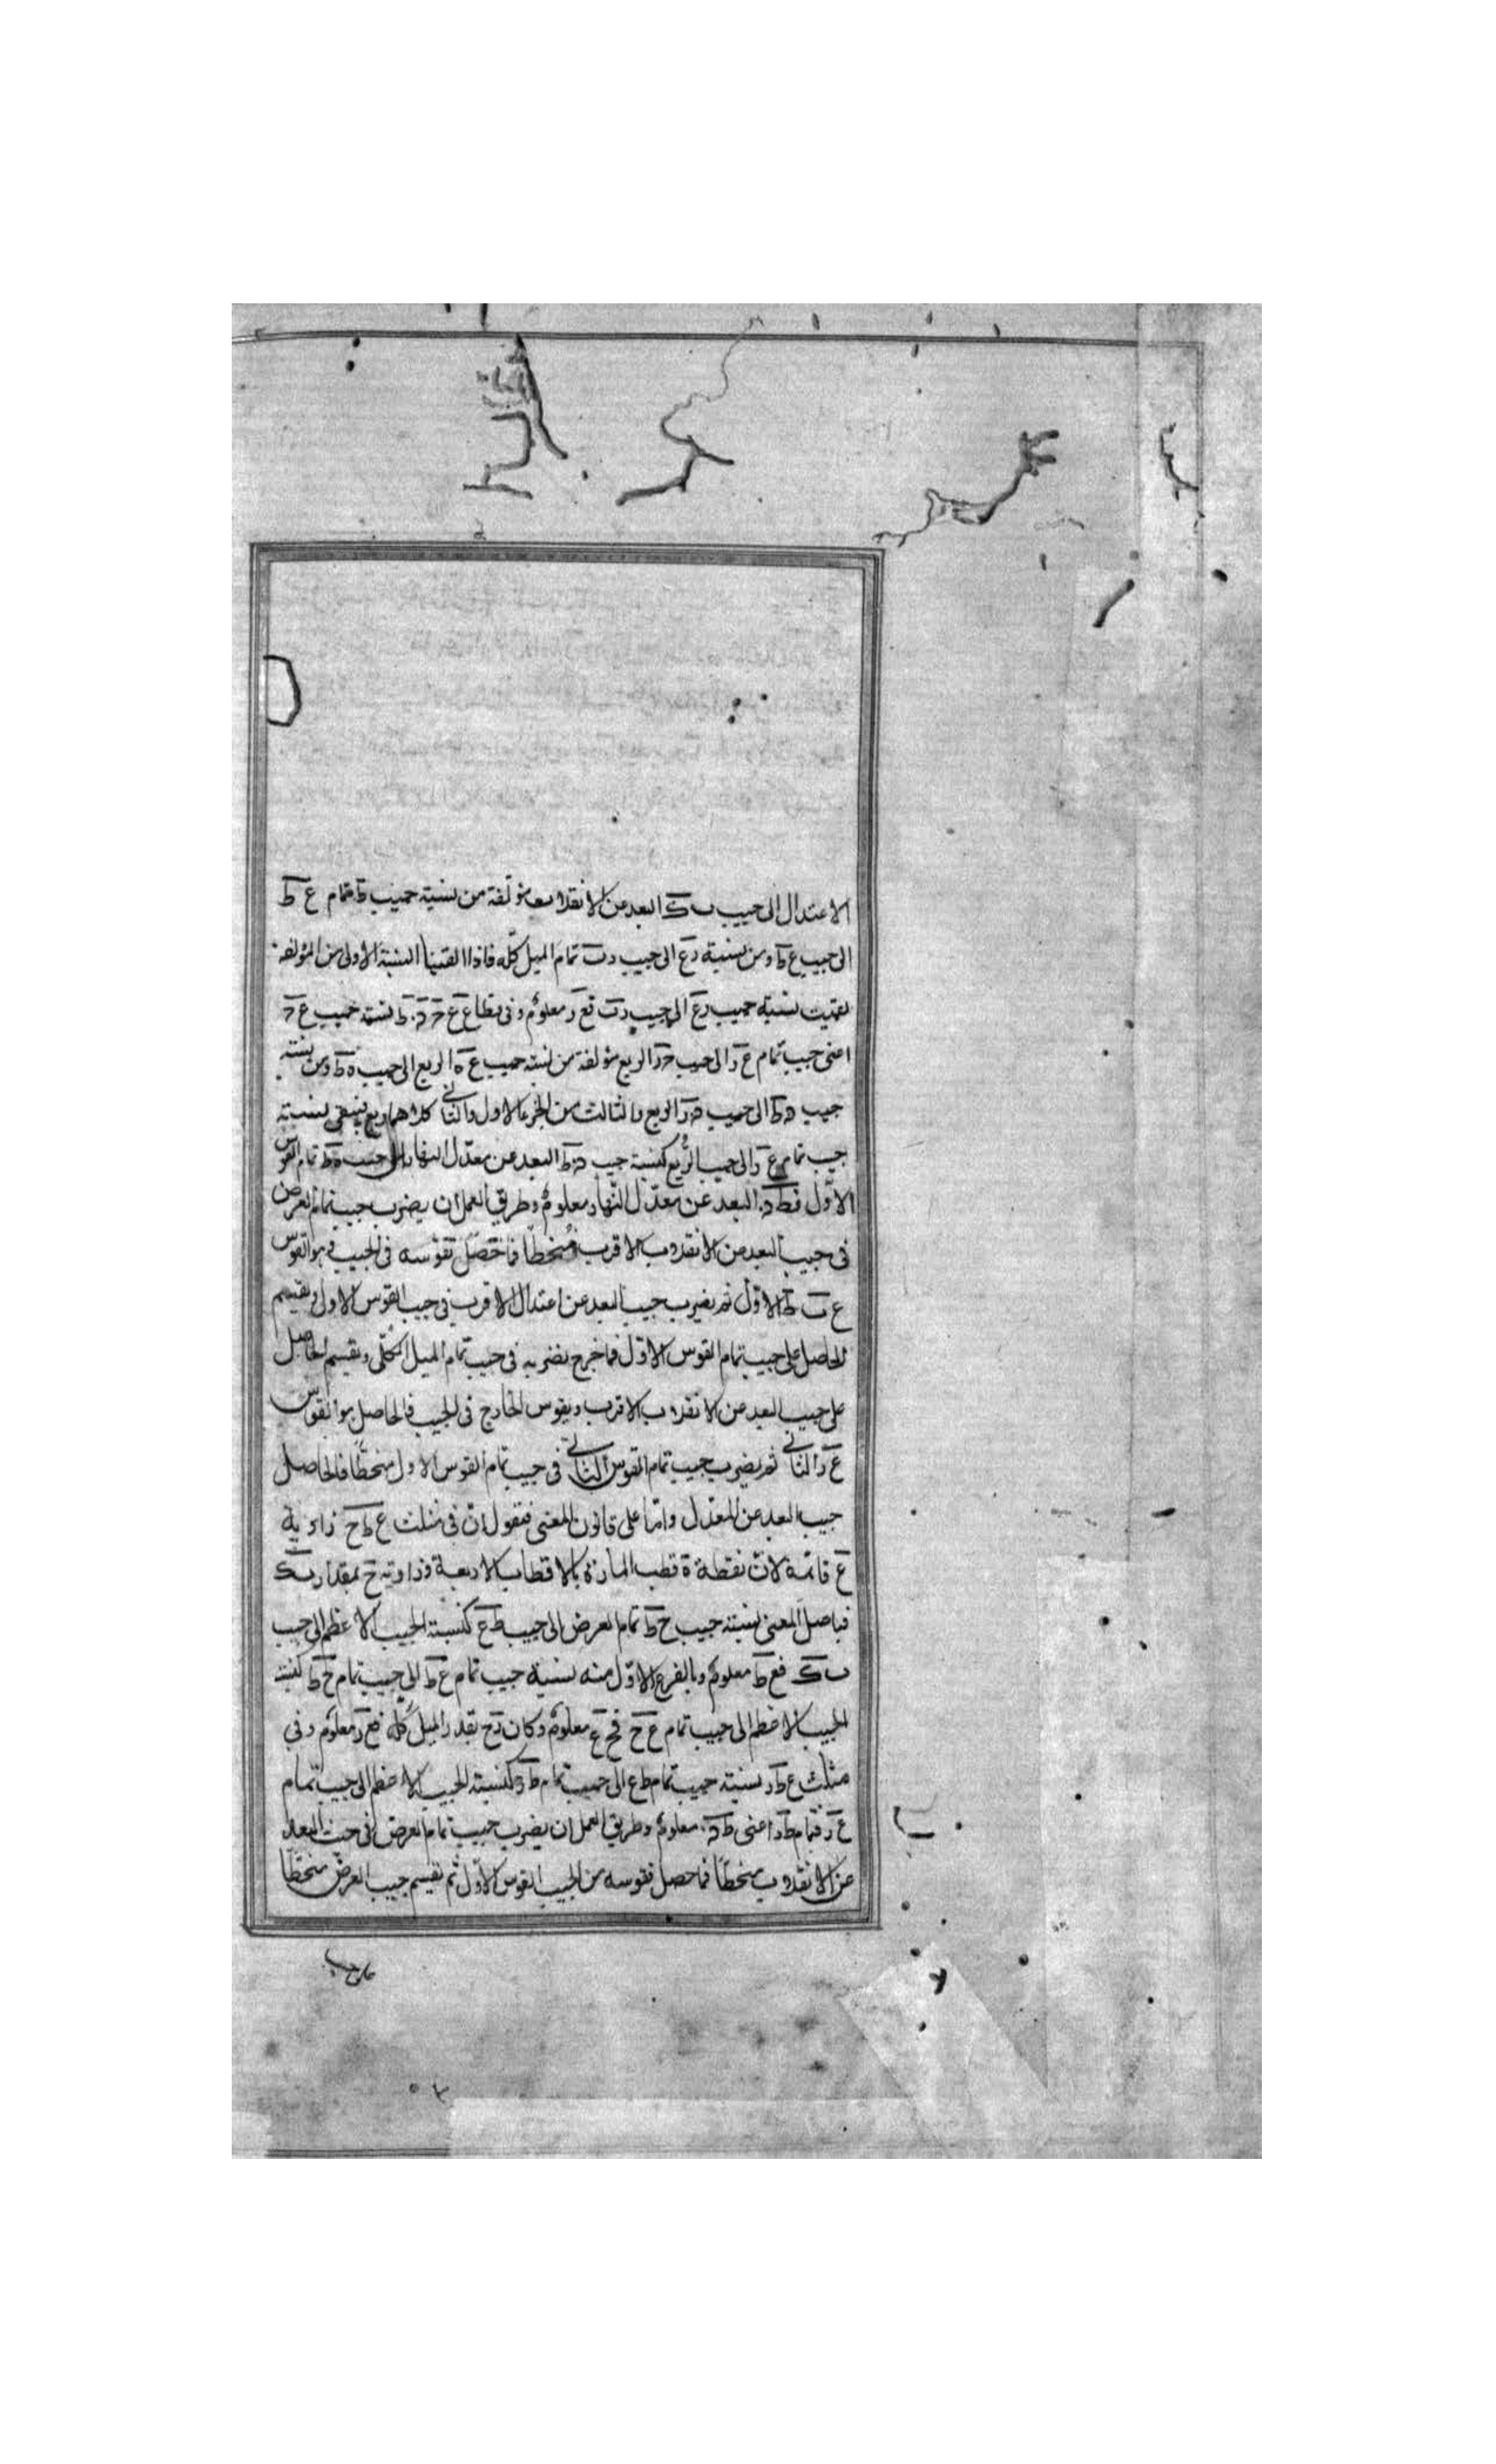 الاعتدال الى جيب ب ك البعد من الانقلاب مؤلفة من نسبة جيب ط تمام ع ط
الى جيب ع ط ومن نسبة ر ع الى جيب ر ت تمام الميل كله فاذا القينا النسبة الاولى من المؤلفة
بقيت نسبة جيب ر ع الى جيب ر ت فع ر معلوم وفى قطاع نسبة جيب ع ح
اعنى جيب تمام ع ر الى جيب ح ر الربع مؤلفة من نسبة جيب ع ه الربع الى جيب ه ط ومن نسبة
جيب د ط الى جيب د ر الربع والثالث من الجزء الاول والثانى كلاهما ربع فيبقى نسبة
جيب تمام ع ر الى جيب الربع كنسبة جيب د ط البعد عن معدل النهار الى جيب ه ط تمام القوس
الاول فط د البعد عن معدل النهار معلوم وطريق العمل ان يضرب جيب تمام العرض
فى جيب البعد من الانقلاب الاقرب منحطا فما حصل نقوسه فى الجيب فهو القوس
ع ط الاول ثم يضرب جيب البعد عن اعتدال الاقرب فى جيب القوس الاول ونقسم
الحاصل على جيب تمام القوس الاول فما خرج نضربه فى جيب تمام الميل الكلى ونقسم الحاصل
على جيب البعد من الانقلاب الاقرب ويقوس الخارج فى الجيب فالحاصل هو القوس
ع ر الثانى ثم يضرب جيب تمام القوس الثانى فى جيب تمام القوس الاول منحطا فالحاصل
جيب البعد عن المعدل واما على قانون المغنى فنقول ان فى مثلث ع ط ح زاوية
ع قائمة لان نقطة ه قطب المارة بالاقطاب الاربعة وزاوية ح بمقدار ب ك
فباصل المغنى نسبة جيب ح ط تمام العرض الى جيب ط ع كنسبة الجيب الاعظم الى جيب
ب ك فع ط معلوم وبالفرع الاول منه نسبة جيب تمام ع ط الى جيب تمام ح ط كنسبة
الجيب الاعظم الى جيب تمام ع ح فح ع معلوم وكان ر ح بقدر الميل كله فع ر معلوم وفى
مثلث ع ط ر نسبة جيب تمام ط ع الى جيب تمام ط ر كنسبة الجيب الاعظم الى جيب تمام
ع ر فتمام ط ر اعنى ط د معلوم وطريق العمل ان يضرب جيب تمام العرض فى جيب البعد
من الانقلاب منحطا فما حصل نقوسه من الجيب القوس الاول ثم نقسم جيب العرض منحطا
على جيب